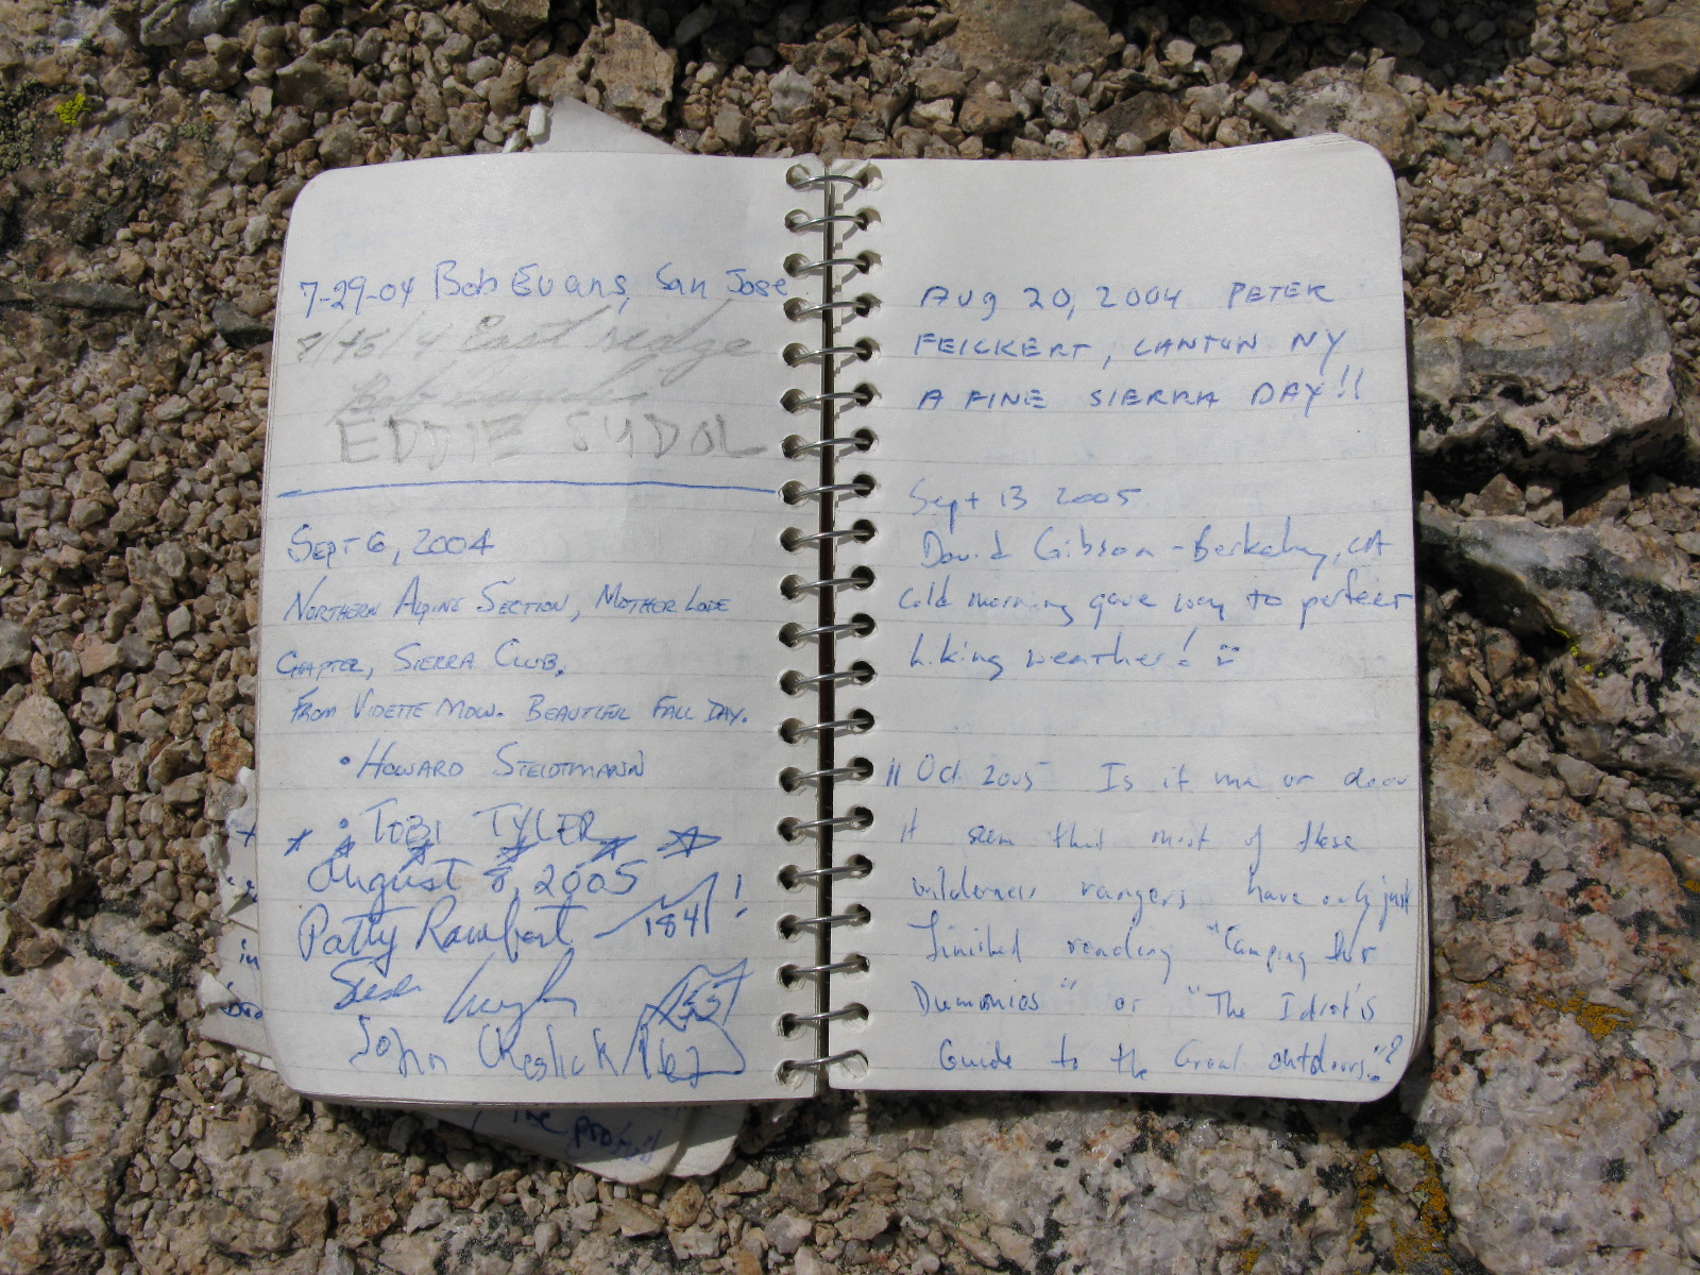 7-29-04 Bob Evans, San Jose
East ridge
Bob
EDDIE SYDOL
SEPT 6, 2004
NORTHERN ALPINE SECTION, MOTHER LODE
CHAPTER, SIERRA CLUB.
FROM VIDETTE MDW. BEAUTIFUL FALL DAY.
• HOWARD STEIDTMANN
• TOBI TYLER
August 8, 2005
Patty Rambert 184!
John Cheslick 162
AUG 20, 2004 PETER
FEICKERT, CANTON NY
A FINE SIERRA DAY!!
Sept 13 2005
David Gibson - Berkeley, CA
Cold morning gave way to perfect
hiking weather!
11 Oct 2005 Is it me or does
it seem that most of these
wilderness rangers have only just
finished reading "Camping for
Dummies" or "The Idiot's
Guide to the Great outdoors"?
The